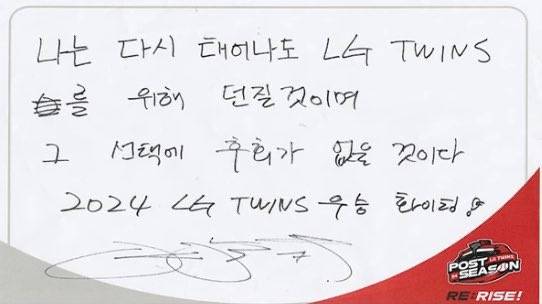 나는 다시 태어나도 LG TWINS
를 위해 던질것이며
그 선택에 후회가 없을 것이다
2024 LG TWINS 우승 화이팅!
LG TWINS
POST
SEASON
RE:RISE!